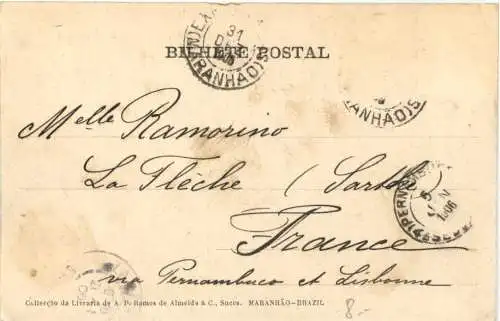 31
DEZ
(MARANHÃO)
BILHETE POSTAL
(MARANHÃO)
Melle Ramorino
La Flèche (Sarthe)
France
via Pernambuco et Lisbonne
5
1906
Collecção da Livraria de A. P. Ramos de Almeida & C., Sucrs. MARANHÃO—BRAZIL
8-